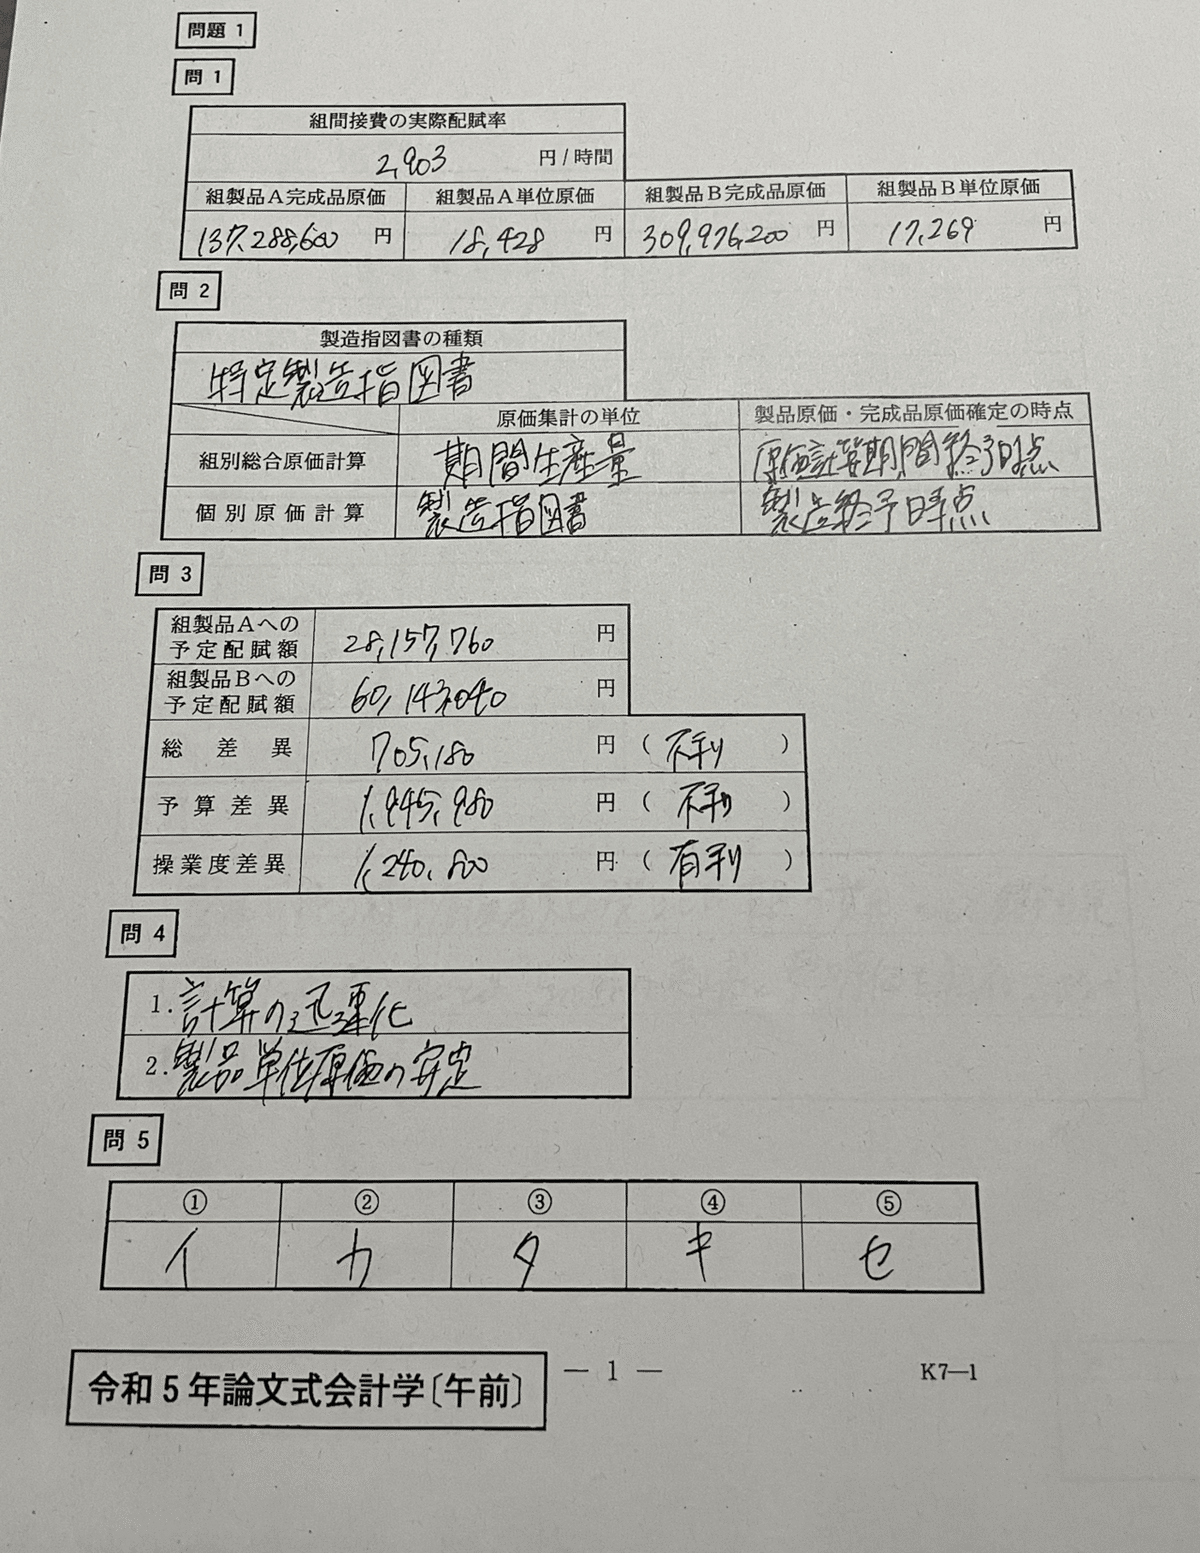 問題 1
問 1
組間接費の実際配賦率
2,903 円/時間
組製品A完成品原価 組製品A単位原価 組製品B完成品原価 組製品B単位原価
137,288,600 円 18,428 円 309,976,200 円 17,269 円
問 2
製造指図書の種類
特定製造指図書
原価集計の単位 製品原価・完成品原価確定の時点
組別総合原価計算 期間生産量 原価計算期間終了時点
個別原価計算 製造指図書 製造終了時点
問 3
組製品Aへの
予定配賦額 28,157,760 円
組製品Bへの
予定配賦額 60,143,040 円
総差異 705,180 円 (不利)
予算差異 1,945,980 円 (不利)
操業度差異 1,240,800 円 (有利)
問 4
1.計算の迅速化
2.製品単位原価の安定
問 5
① ② ③ ④ ⑤
イ カ タ キ セ
― 1 ― K7―1
令和5年論文式会計学〔午前〕